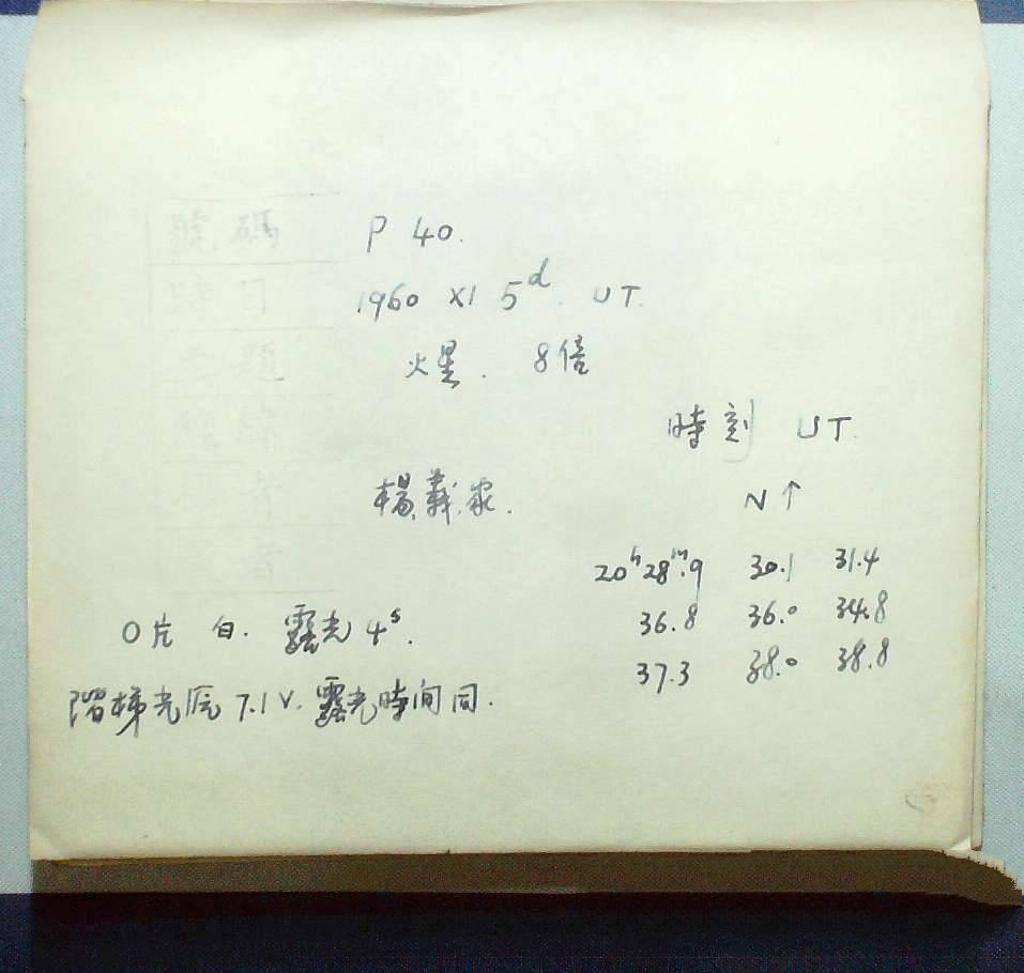 號碼 P 40.
時日 1960 XI 5d. UT.
題 火星. 8倍
時刻 UT.
N↑
楊
20h28m.9 30.1 31.4
36.8 36.0 34.8
37.3 38.0 38.8
O片 白. 露光 4s.
階梯光 7.1 V. 露光時间同.